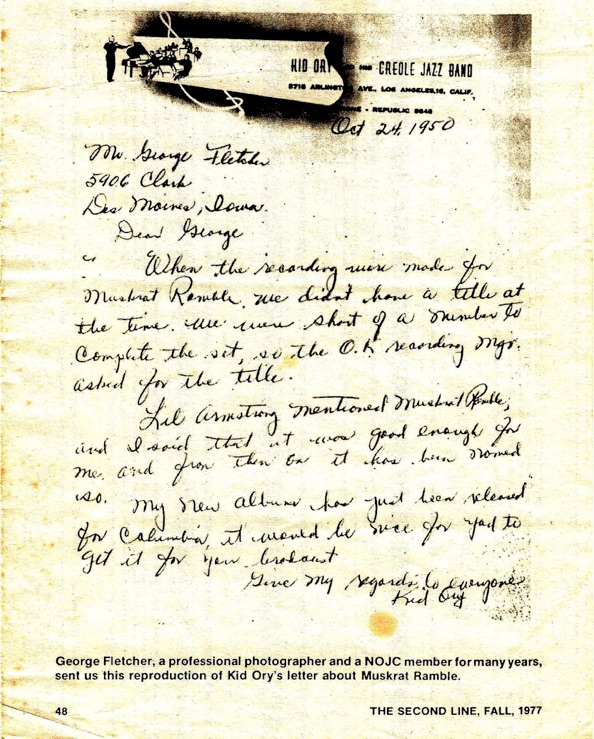 KID ORY AND HIS CREOLE JAZZ BAND
5716 ARLINGTON AVE., LOS ANGELES, 16, CALIF.
PHONE - REPUBLIC
Oct 24, 1950
Mr. George Fletcher
5906 Clark
Des Moines, Iowa.
Dear George
When the recording were made for
Muskrat Ramble, we didn't have a title at
the time. We were short of a number to
Complete the set, so the O.K recording Mgr.
asked for the title.
Lil Armstrong mentioned Muskrat Ramble,
and I said that it was good enough for
me, and from then on it has been named
so. My new album has just been released
for Columbia, it would be nice for you to
get it for your broadcast
Give my regards to everyone
Kid Ory
George Fletcher, a professional photographer and a NOJC member for many years,
sent us this reproduction of Kid Ory's letter about Muskrat Ramble.
48 THE SECOND LINE, FALL, 1977